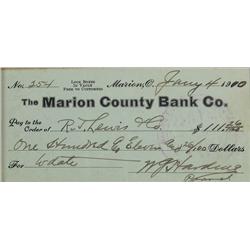 No. 254 LOCK BOXES IN VAULT FREE TO CUSTOMERS Marion, O. Jany 4 1900
The Marion County Bank Co.
Pay to the Order of R. T. Lewis & Co. $ 111 26/100
One Hundred & Eleven 26/100 Dollars
For to date W G Harding